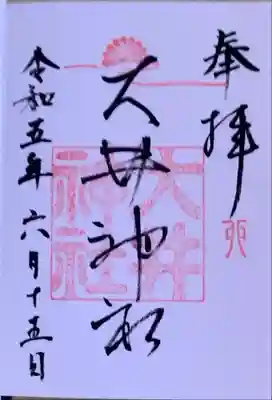 奉拝
大井神社
大井神社
令和五年六月十五日